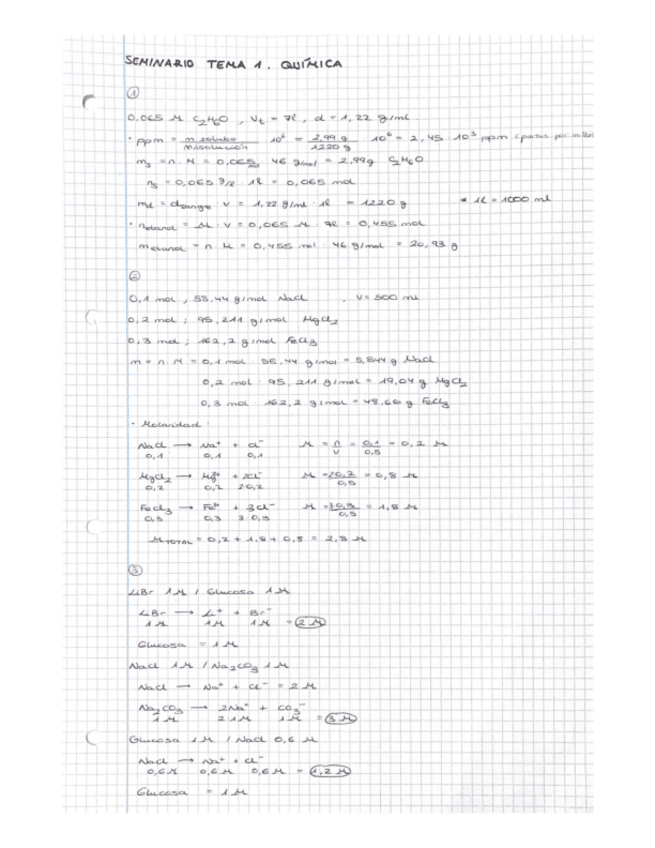 SEMINARIO TEMA 1. QUÍMICA
①
0,065 M C2H6O, Vt = 7l, d = 1,22 g/ml
· ppm = m soluto / m disolución · 10^6 = 2,99 g / 1220 g · 10^6 = 2,45 · 10^3 ppm
ms = n · M = 0,065 · 46 g/mol = 2,99g C2H6O
ns = 0,065 · 1l = 0,065 mol
v = 1,22 g/ml · 1l = 1220 g * 1l = 1000 ml
· netanol = M · V = 0,065 M · 7l = 0,455 mol
metanol = n · M = 0,455 mol · 46 g/mol = 20,93 g
②
0,1 mol, 58,44 g/mol NaCl, V = 500 ml
0,2 mol; 95,211 g/mol MgCl2
0,3 mol; 162,2 g/mol FeCl3
m = n · M = 0,1 mol · 58,44 g/mol = 5,844 g NaCl
0,2 mol · 95,211 g/mol = 19,04 g MgCl2
0,3 mol · 162,2 g/mol = 48,66 g FeCl3
· Molaridad
NaCl → Na+ + Cl- M = n/V = 0,1/0,5 = 0,2 M
0,1 0,1 0,1
MgCl2 → Mg2+ + 2Cl- M = 2·0,2/0,5 = 0,8 M
0,2 0,2 2·0,2
FeCl3 → Fe3+ + 3Cl- M = 3·0,3/0,5 = 1,8 M
0,3 0,3 3·0,3
MTOTAL = 0,2 + 1,8 + 0,8 = 2,8 M
③
LiBr 1M / Glucosa 1M
LiBr → Li+ + Br-
1M 1M 1M = 2 M
Glucosa = 1M
NaCl 1M / Na2CO3 1M
NaCl → Na+ + Cl- = 2M
Na2CO3 → 2Na+ + CO3-
1M 2·1M 1M = 3M
Glucosa 1M / NaCl 0,6 M
NaCl → Na+ + Cl-
0,6M 0,6M 0,6M = 1,2 M
Glucosa = 1M